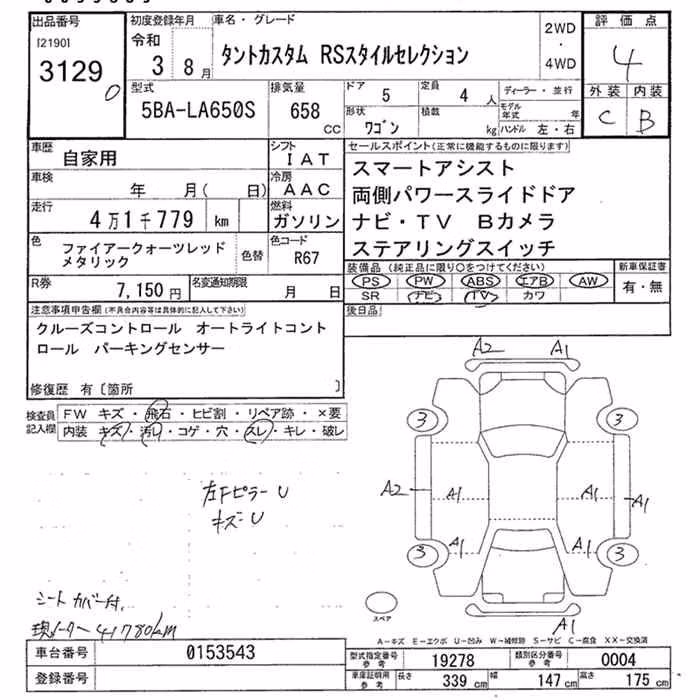 出品番号
[2190]
3129
0
初度登録年月
令和
3 8月
車名・グレード
タントカスタム RSスタイルセレクション
2WD
・
4WD
評価点
4
外装 内装
C B
型式
5BA-LA650S
排気量
658
CC
ドア
5
定員
4 人
形状
ワゴン
積載
kg
ディーラー・並行
モデル年式 年
ハンドル 左・右
車歴
自家用
シフト
IAT
車検
年 月( 日)
冷房
AAC
走行
4万1千779 km
燃料
ガソリン
色
ファイアークォーツレッド
メタリック
色替
色コード
R67
R券
7,150円
名変通知期限
月 日
セールスポイント(正常に機能するものに限ります)
スマートアシスト
両側パワースライドドア
ナビ・TV Bカメラ
ステアリングスイッチ
装備品 (純正品に限り○をつけてください)
PS PW ABS エアB AW
SR ナビ TV カワ
新車保証書
有・無
後日品
注意事項申告欄(不具合内容等は具体的に記入して下さい)
クルーズコントロール オートライトコント
ロール パーキングセンサー
修復歴 有〔箇所 〕
検査員
記入欄
FW キズ・飛石・ヒビ割・リペア跡・×要
内装 キズ・汚レ・コゲ・穴・スレ・キレ・破レ
左Fピラー U
キズ U
シートカバー付.
現メーター 41780km
A2 A1
3 3
A2 A1 A1 A1
A1 A1
3 3
スペア
A1
A-キズ E-エクボ U-凹み W-補修跡 S-サビ C-腐食 XX-交換済
車台番号
0153543
登録番号
型式指定番号
参考
19278
類別区分番号
参考
0004
車庫証明用
参考
長さ
339 cm
幅
147 cm
高さ
175 cm